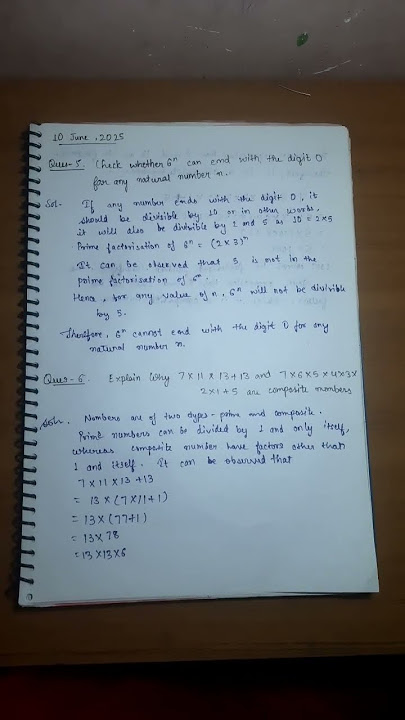 10 June, 2025
Ques-5. Check whether 6ⁿ can end with the digit 0
for any natural number n.
Sol- If any number ends with the digit 0, it
should be divisible by 10 or in other words,
it will also be divisible by 2 and 5 as 10 = 2×5
Prime factorisation of 6ⁿ = (2×3)ⁿ
It can be observed that 5 is not in the
prime factorisation of 6ⁿ.
Hence, for any value of n, 6ⁿ will not be divisible
by 5.
Therefore, 6ⁿ cannot end with the digit 0 for any
natural number n.
Ques-6. Explain Why 7×11×13+13 and 7×6×5×4×3×
2×1+5 are composite numbers
Soln. Numbers are of two types - prime and composite.
Prime numbers can be divided by 1 and only itself,
whereas composite number have factors other than
1 and itself. It can be observed that
7×11×13+13
= 13×(7×11+1)
= 13×(77+1)
= 13×78
= 13×13×6